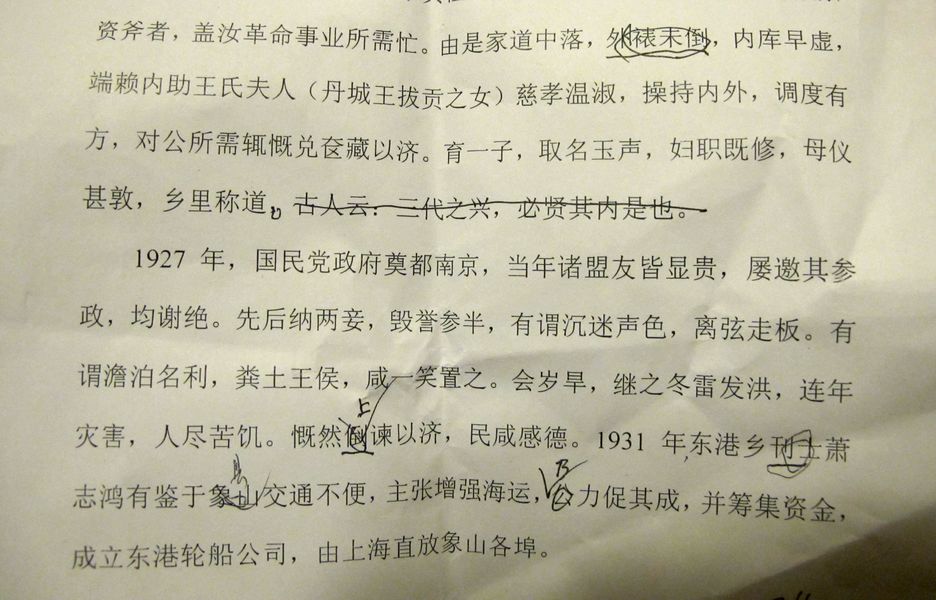 资斧者，盖汝革命事业所需忙。由是家道中落，外裱未倒，内库早虚，
端赖内助王氏夫人（丹城王拔贡之女）慈孝温淑，操持内外，调度有
方，对公所需辄慨兑奁藏以济。育一子，取名玉声，妇职既修，母仪
甚敦，乡里称道。古人云：三代之兴，必贤其内是也。
1927 年，国民党政府奠都南京，当年诸盟友皆显贵，屡邀其参
政，均谢绝。先后纳两妾，毁誉参半，有谓沉迷声色，离弦走板。有
谓澹泊名利，粪土王侯，咸一笑置之。会岁旱，继之冬雷发洪，连年
上
灾害，人尽苦饥。慨然谏以济，民咸感德。1931 年东港乡士萧
志鸿有鉴于象山交通不便，主张增强海运，公力促其成，并筹集资金，
成立东港轮船公司，由上海直放象山各埠。